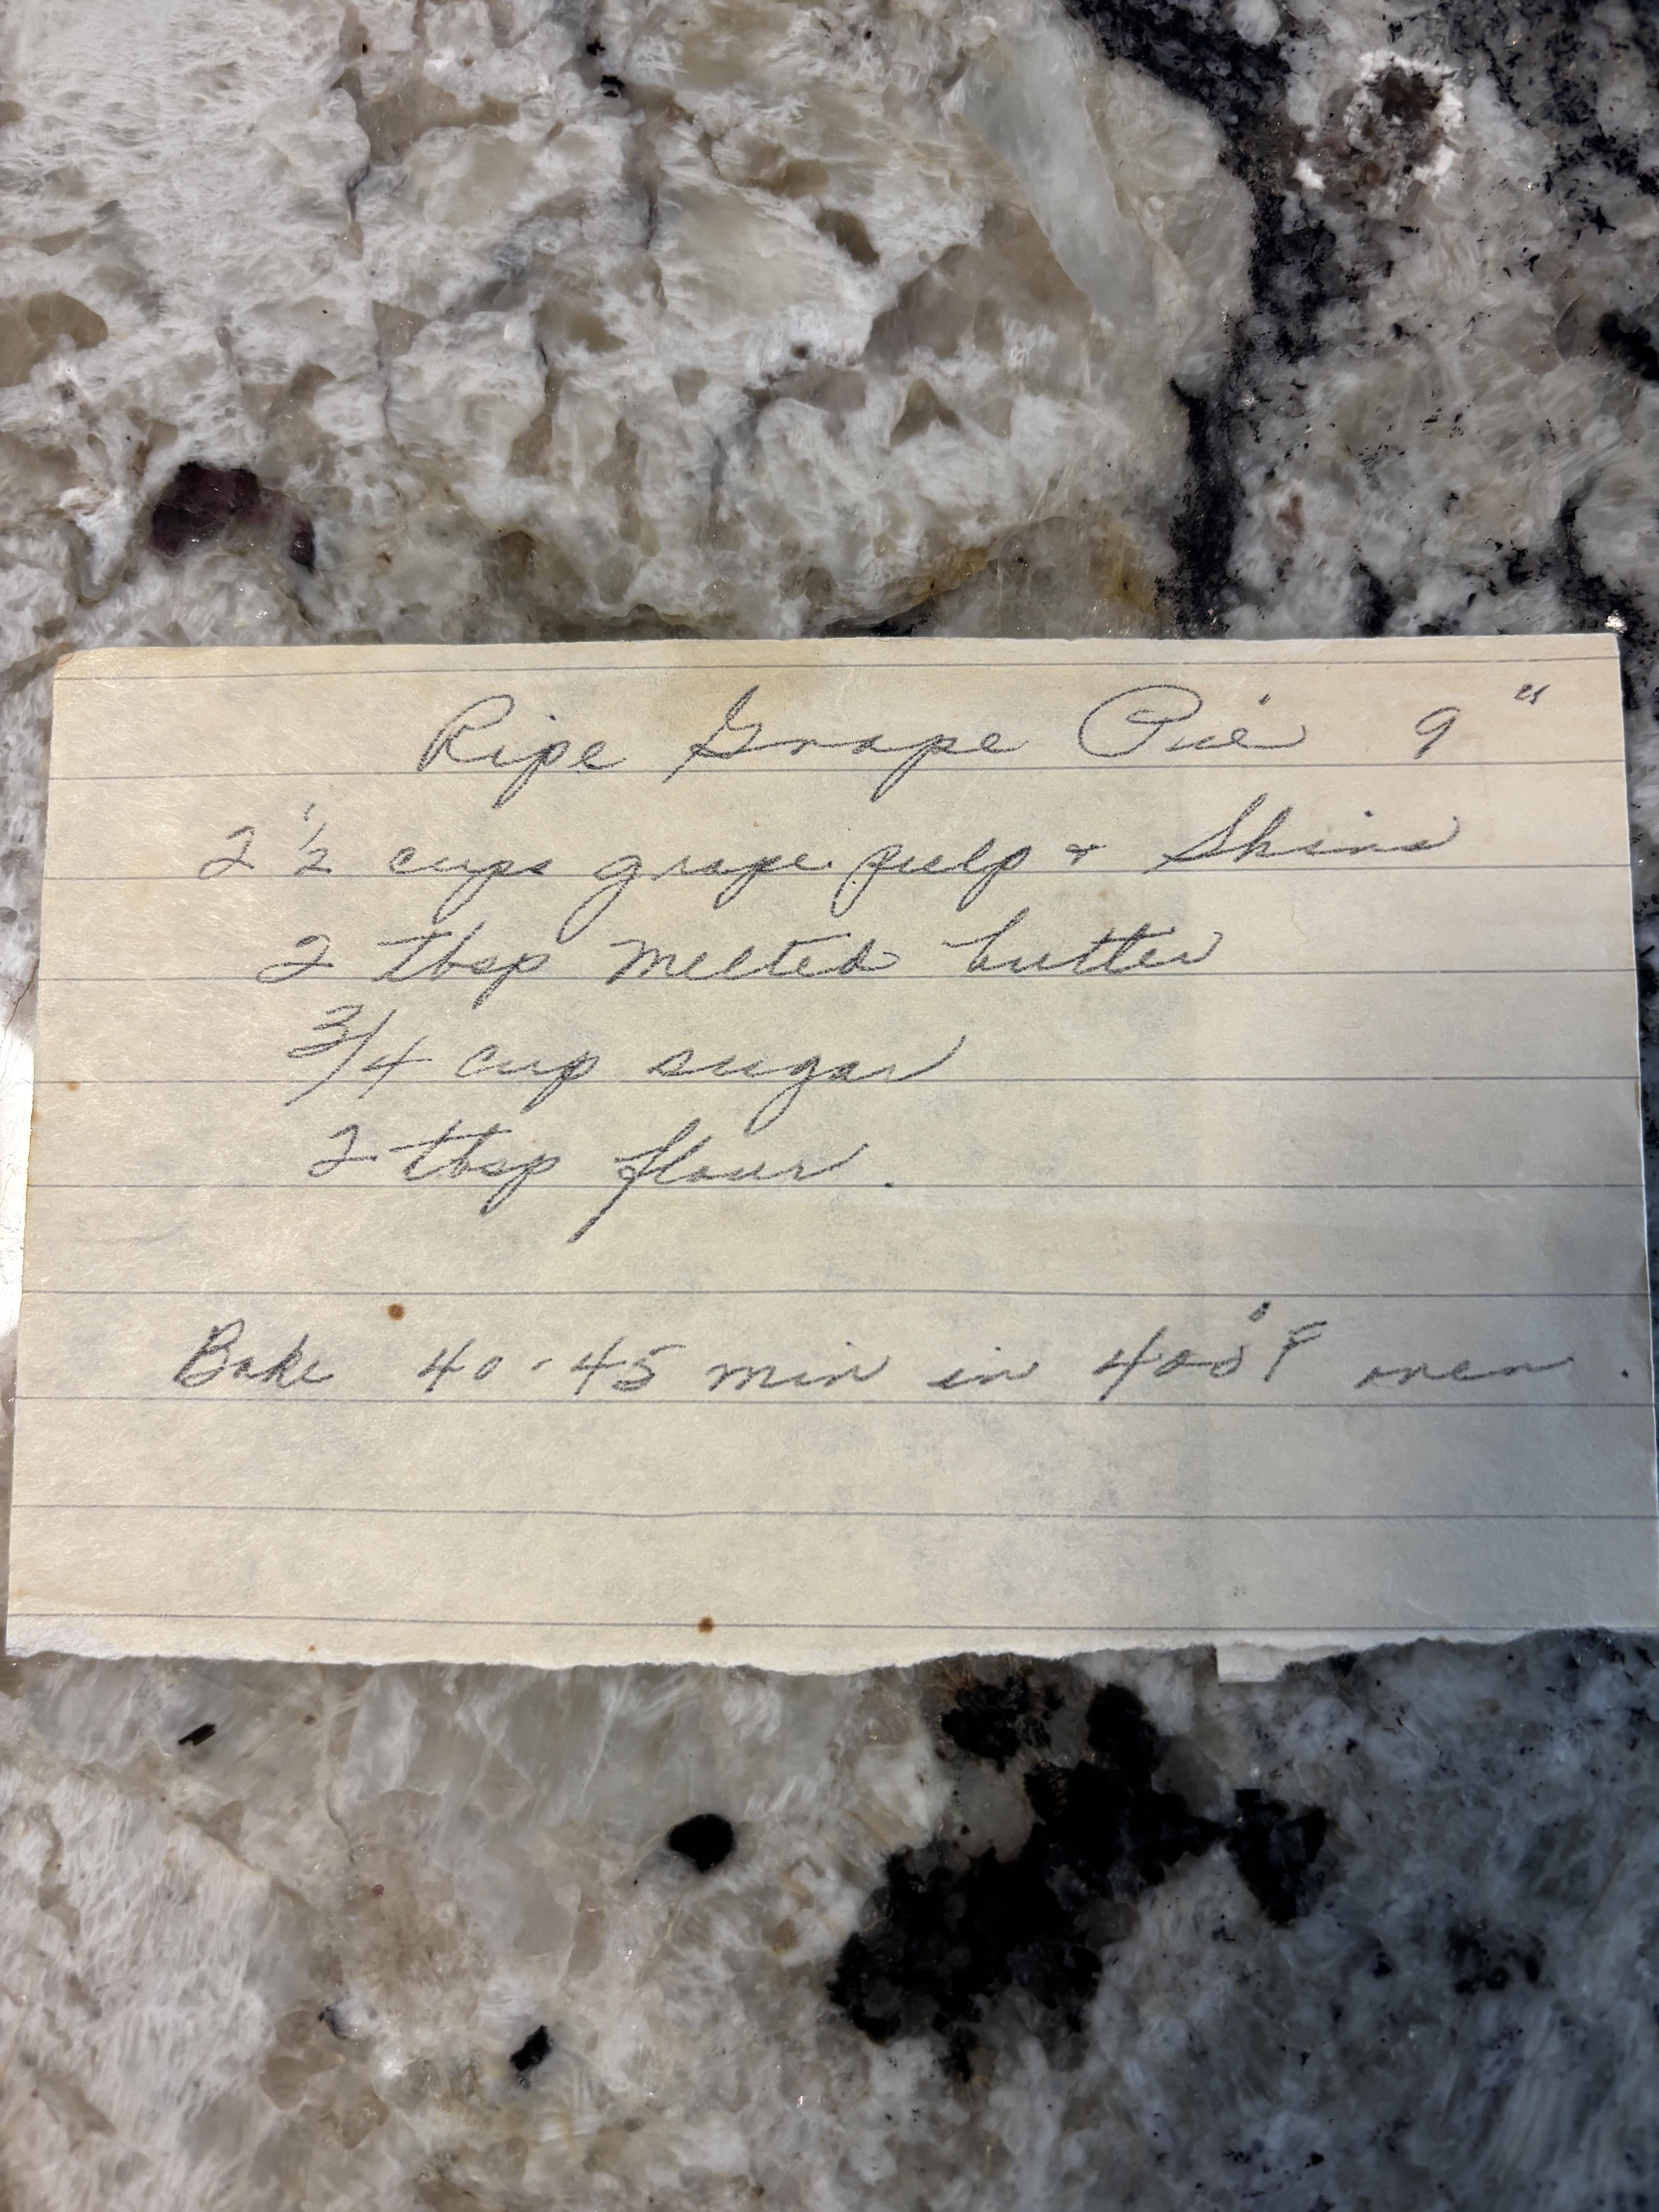 Ripe Grape Pie 9"
2 1/2 cups grape pulp & Skins
2 tbsp melted butter
3/4 cup sugar
2 tbsp flour.
Bake 40-45 min in 400°F oven.